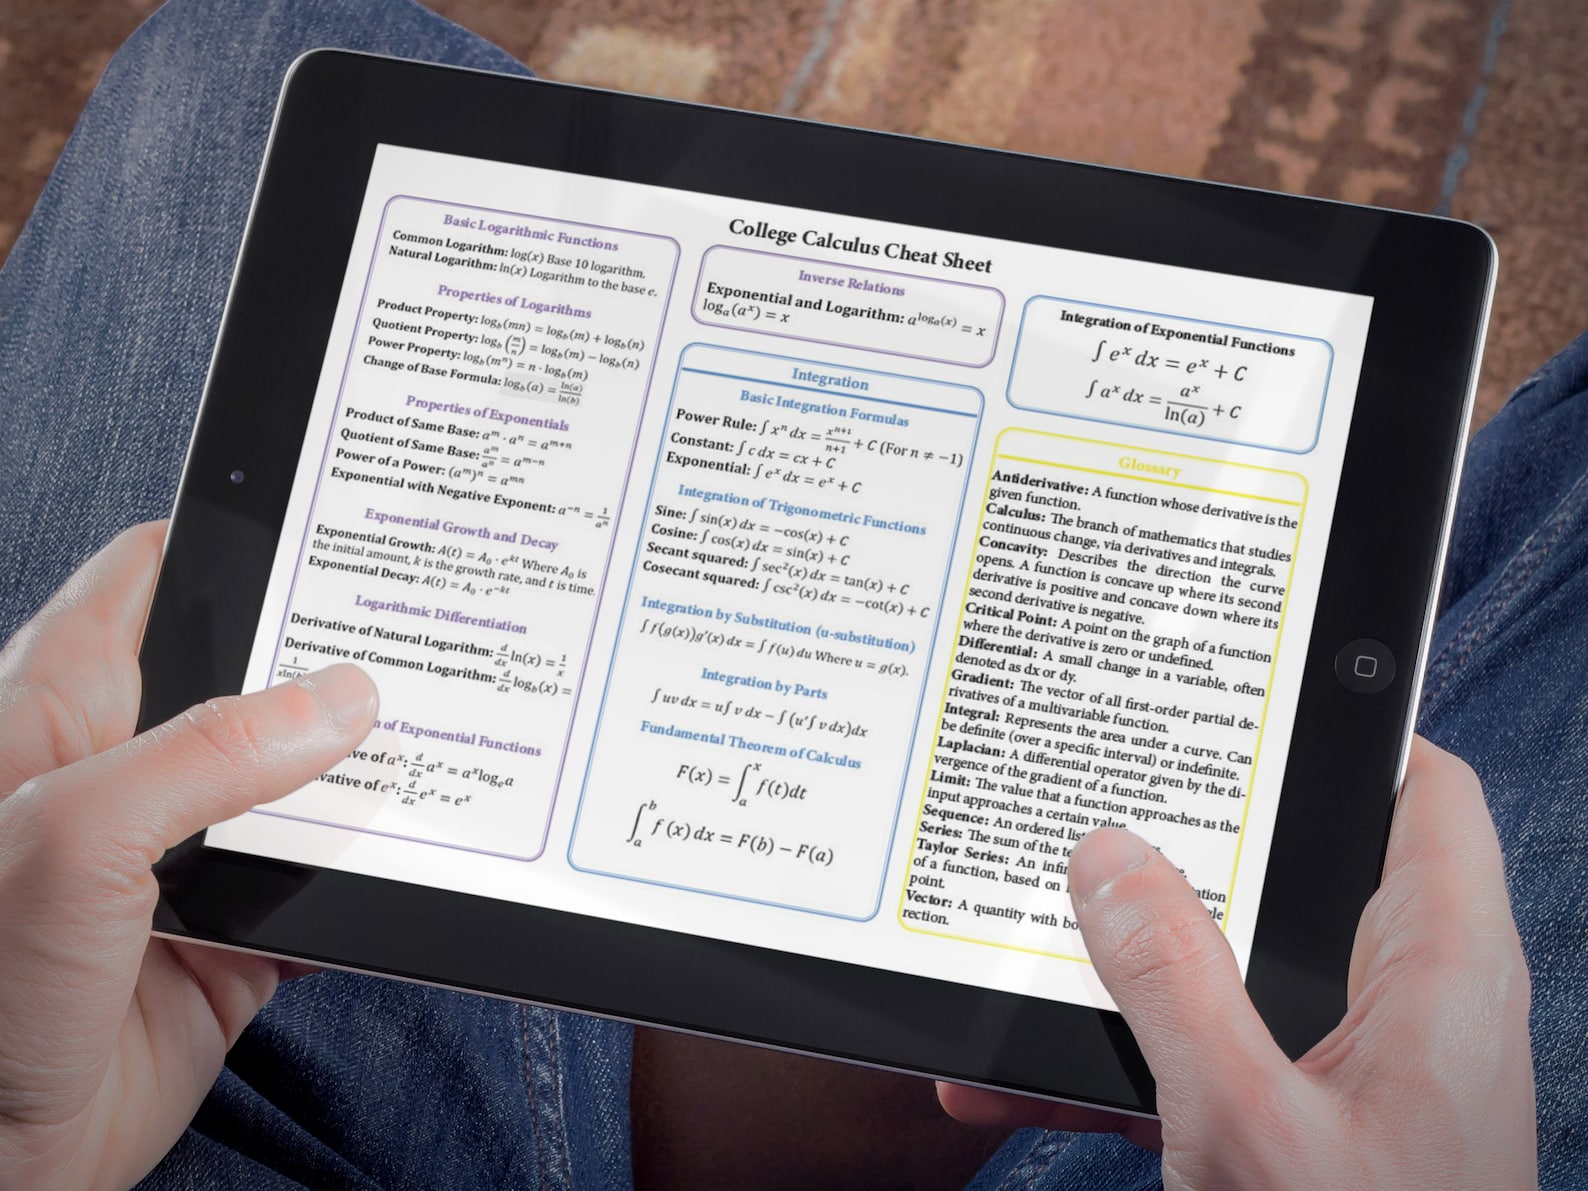 College Calculus Cheat Sheet
Basic Logarithmic Functions
Common Logarithm: log(x) Base 10 logarithm.
Natural Logarithm: ln(x) Logarithm to the base e.
Properties of Logarithms
Product Property: log_b(mn) = log_b(m) + log_b(n)
Quotient Property: log_b(m/n) = log_b(m) − log_b(n)
Power Property: log_b(mⁿ) = n · log_b(m)
Change of Base Formula: log_b(a) = ln(a)/ln(b)
Properties of Exponentials
Product of Same Base: a^m · a^n = a^(m+n)
Quotient of Same Base: a^m/a^n = a^(m−n)
Power of a Power: (a^m)^n = a^(mn)
Exponential with Negative Exponent: a^(−n) = 1/a^n
Exponential Growth and Decay
Exponential Growth: A(t) = A₀ · e^(kt) Where A₀ is
the initial amount, k is the growth rate, and t is time.
Exponential Decay: A(t) = A₀ · e^(−kt)
Logarithmic Differentiation
Derivative of Natural Logarithm: d/dx ln(x) = 1/x
Derivative of Common Logarithm: d/dx log_b(x) =
1/xln(
of Exponential Functions
of a^x: d/dx a^x = a^x log_e a
of e^x: d/dx e^x = e^x
Inverse Relations
Exponential and Logarithm: a^(log_a(x)) = x
log_a(a^x) = x
Integration
Basic Integration Formulas
Power Rule: ∫ x^n dx = x^(n+1)/(n+1) + C (For n ≠ −1)
Constant: ∫ c dx = cx + C
Exponential: ∫ e^x dx = e^x + C
Integration of Trigonometric Functions
Sine: ∫ sin(x) dx = −cos(x) + C
Cosine: ∫ cos(x) dx = sin(x) + C
Secant squared: ∫ sec²(x) dx = tan(x) + C
Cosecant squared: ∫ csc²(x) dx = −cot(x) + C
Integration by Substitution (u-substitution)
∫ f(g(x))g′(x) dx = ∫ f(u) du Where u = g(x).
Integration by Parts
∫ uv dx = u∫ v dx − ∫ (u′∫ v dx)dx
Fundamental Theorem of Calculus
F(x) = ∫_a^x f(t)dt
∫_a^b f(x) dx = F(b) − F(a)
Integration of Exponential Functions
∫ e^x dx = e^x + C
∫ a^x dx = a^x/ln(a) + C
Glossary
Antiderivative: A function whose derivative is the
given function.
Calculus: The branch of mathematics that studies
continuous change, via derivatives and integrals.
Concavity: Describes the direction the curve
opens. A function is concave up where its second
derivative is positive and concave down where its
second derivative is negative.
Critical Point: A point on the graph of a function
where the derivative is zero or undefined.
Differential: A small change in a variable, often
denoted as dx or dy.
Gradient: The vector of all first-order partial de-
rivatives of a multivariable function.
Integral: Represents the area under a curve. Can
be definite (over a specific interval) or indefinite.
Laplacian: A differential operator given by the di-
vergence of the gradient of a function.
Limit: The value that a function approaches as the
input approaches a certain value.
Sequence: An ordered list
Series: The sum of the
Taylor Series: An
of a function, based on
point.
Vector: A quantity with
rection.